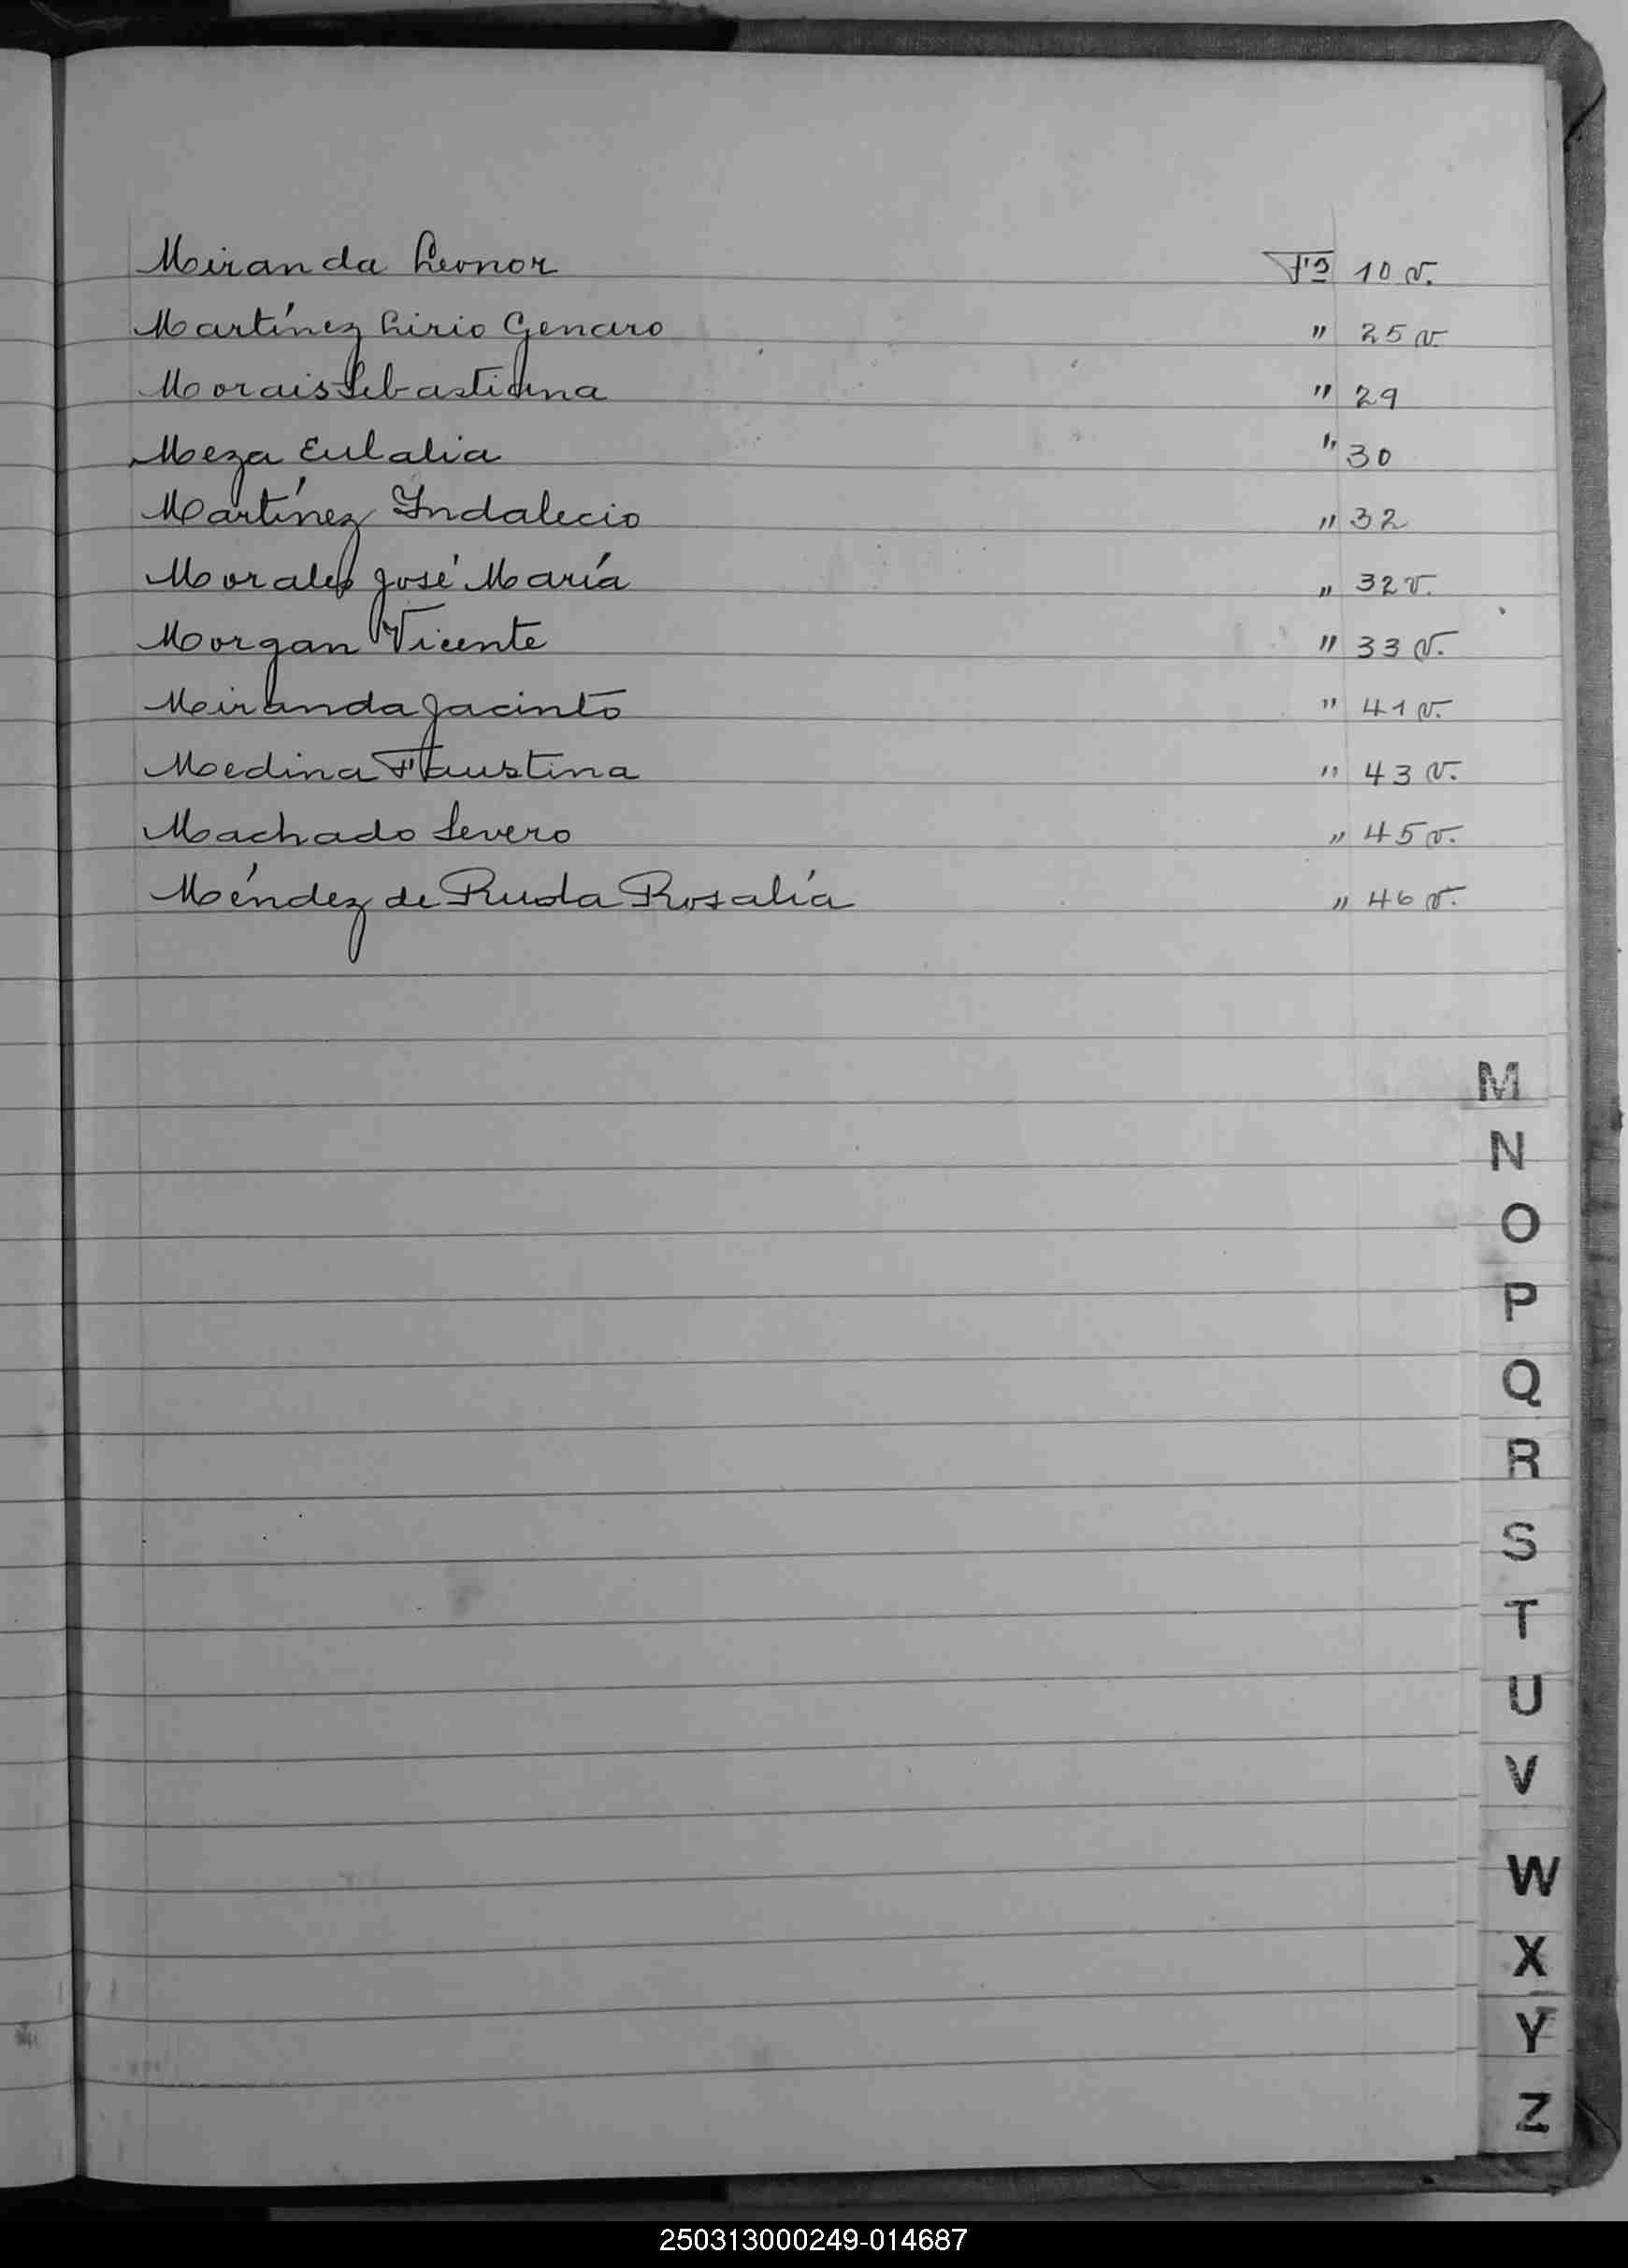 Miranda Leonor Fº 10 v.
Martínez Lirio Genaro " 25 v
Morais Sebastiana " 29
Meza Eulalia " 30
Martínez Indalecio " 32
Morales José María " 32 v.
Morgan Vicente " 33 v.
Miranda Jacinto " 41 v.
Medina Faustina " 43 v.
Machado Severo " 45 v.
Méndez de Rosalía " 46 v.
M
N
O
P
Q
R
S
T
U
V
W
X
Y
Z
250313000249-014687